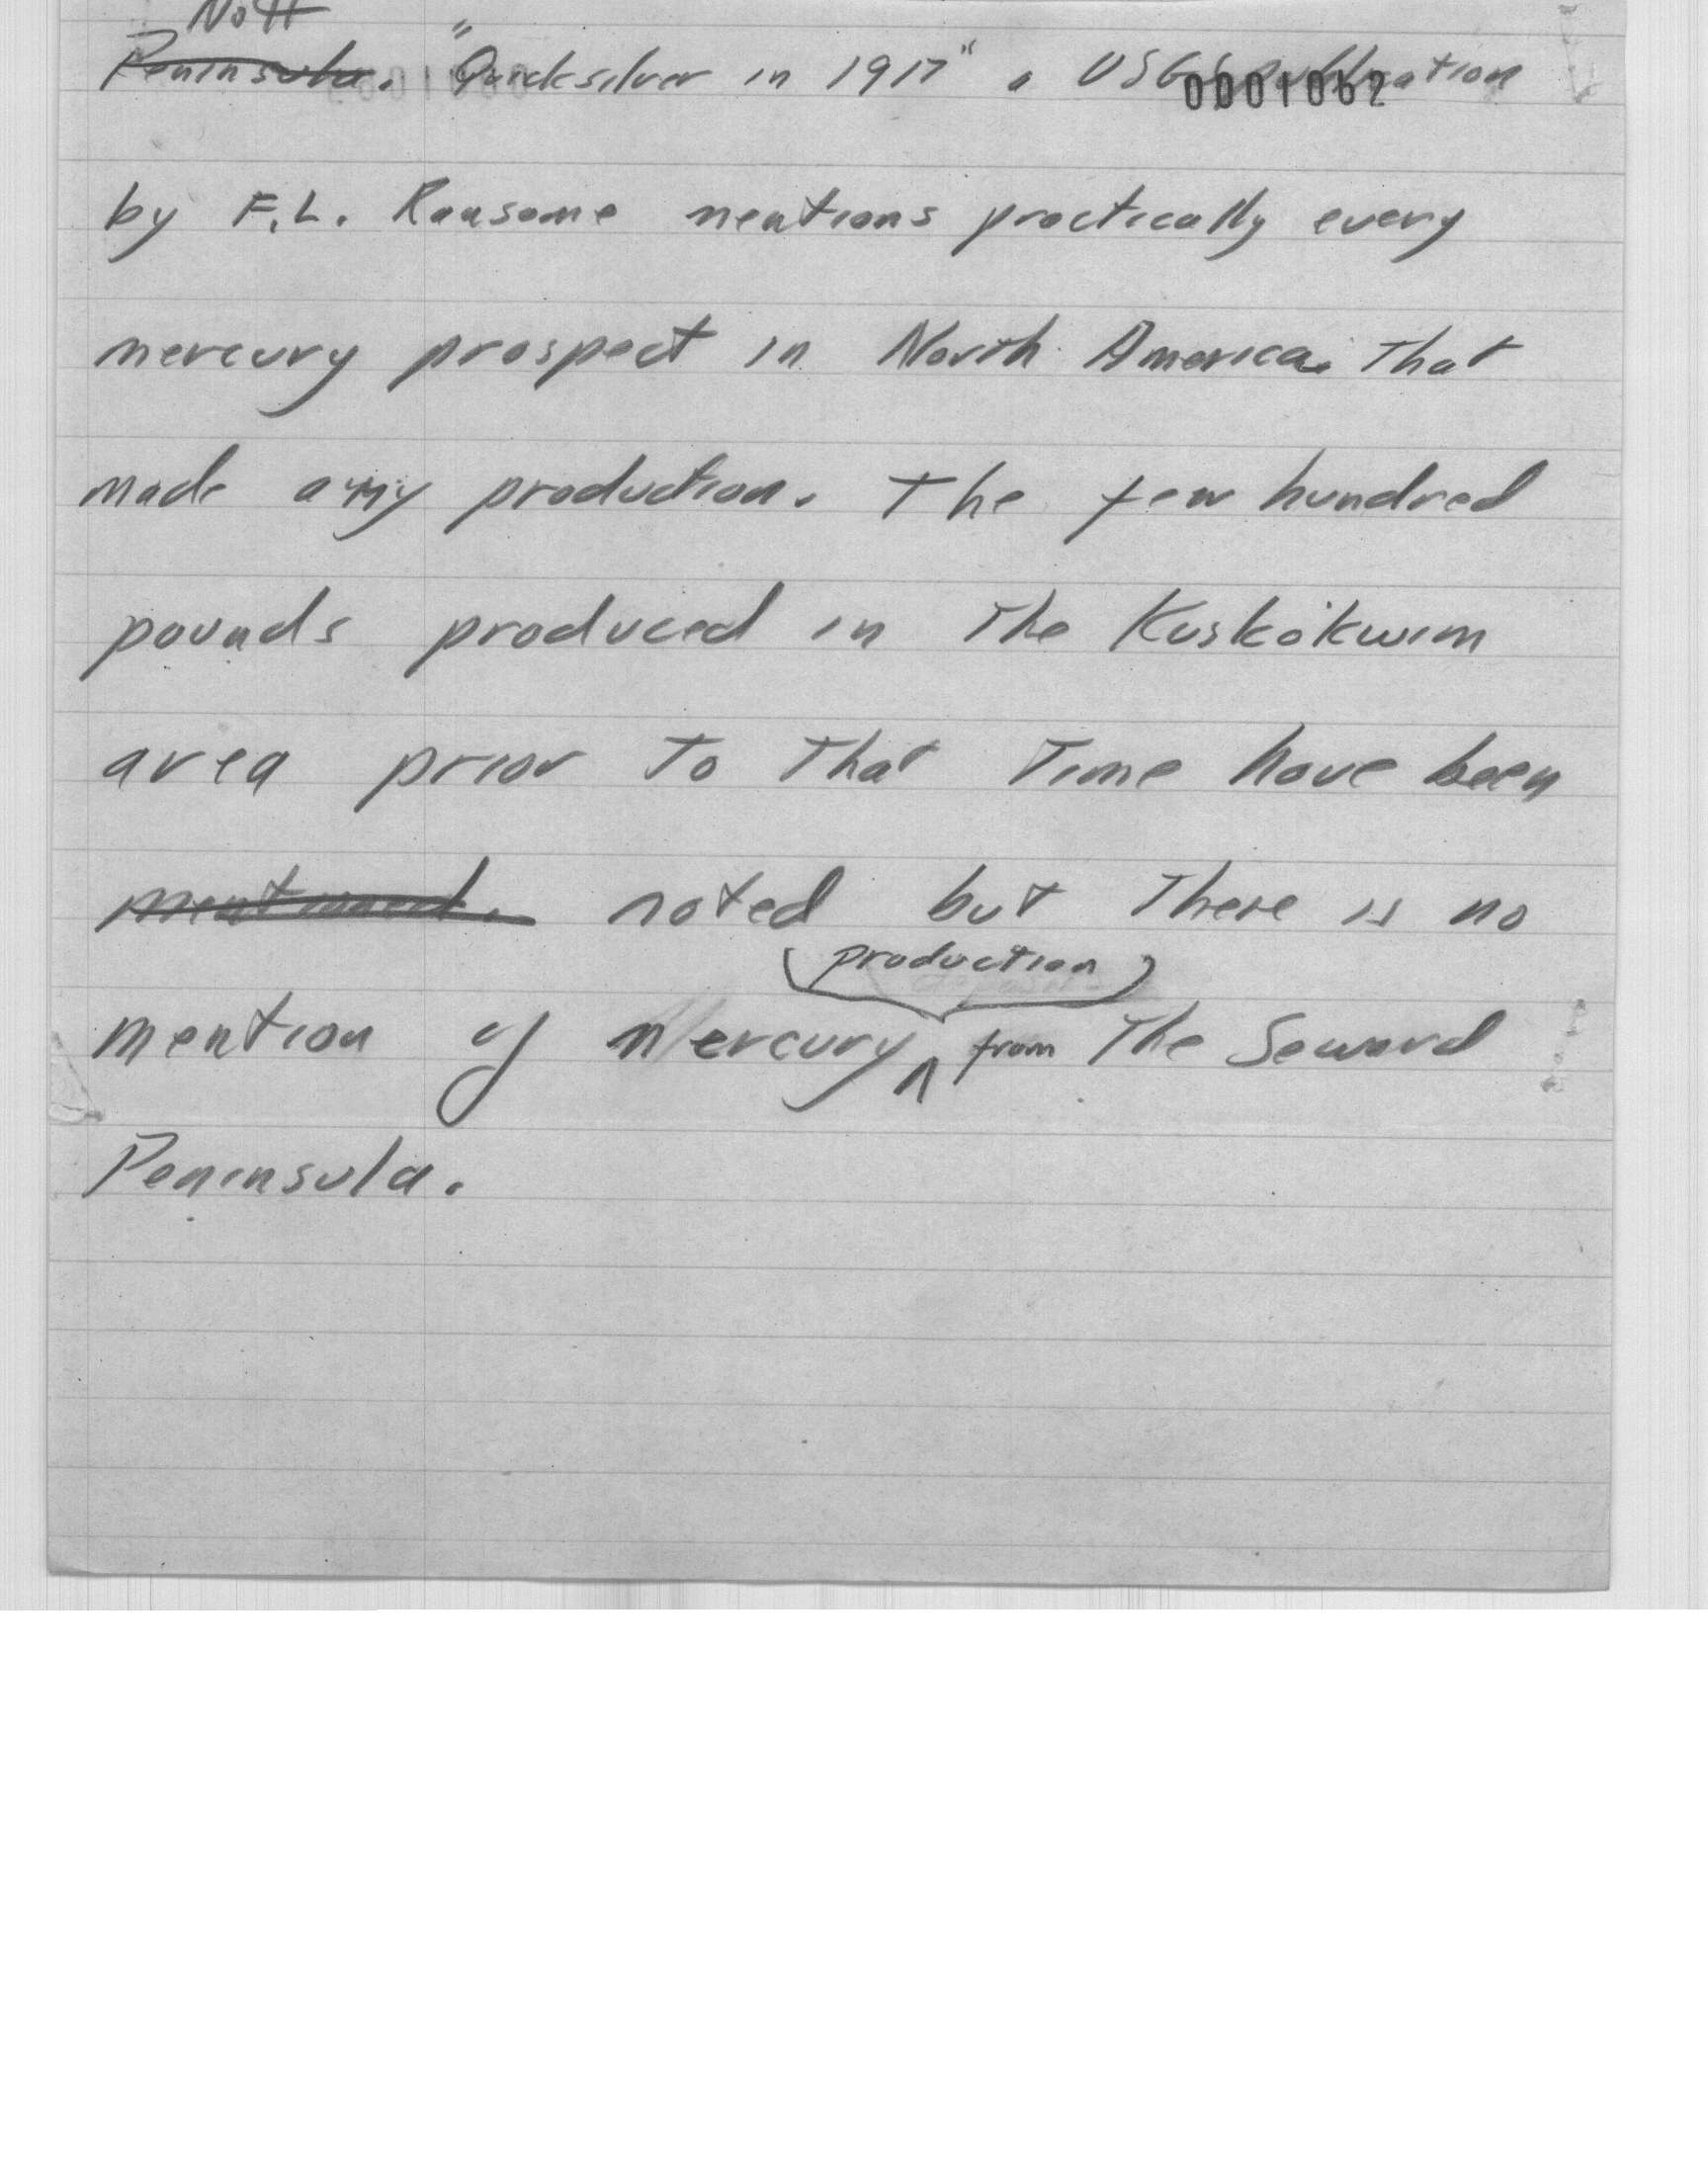 No ¶
Peninsula. "Quicksilver in 1917" a USGS publication
0001062
by F.L. Ransome mentions practically every
mercury prospect in North America. that
made any production. The few hundred
pounds produced in the Kuskokwim
area prior to that time have been
mentioned. noted but there is no
production
mention of mercury ^ from the Seward
Peninsula.